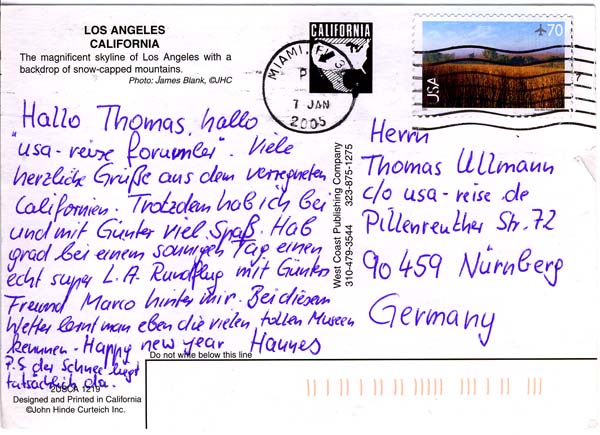 LOS ANGELES
CALIFORNIA
The magnificent skyline of Los Angeles with a
backdrop of snow-capped mountains.
Photo: James Blank, ©JHC
Hallo Thomas, hallo
"usa-reise forumler". Viele
herzliche Grüße aus dem verregneten
Californien. Trotzdem hab ich bei
und mit Günter viel Spaß. Hab
grad bei einem sonnigen Tag einen
echt super L.A. Rundflug mit Günters
Freund Marco hinter mir. Bei diesem
Wetter lernt man eben die vielen tollen Museen
kennen. Happy new year Hannes
P.S der Schnee liegt
tatsächlich da.
2USCA 1219
Designed and Printed in California
©John Hinde Curteich Inc.
Do not write below this line
West Coast Publishing Company
310-479-3544 323-875-1275
CALIFORNIA
MIAMI, FL
P
7 JAN
2005
70
USA
Herrn
Thomas Ullmann
c/o usa-reise.de
Pillenreuther Str. 72
90459 Nürnberg
Germany